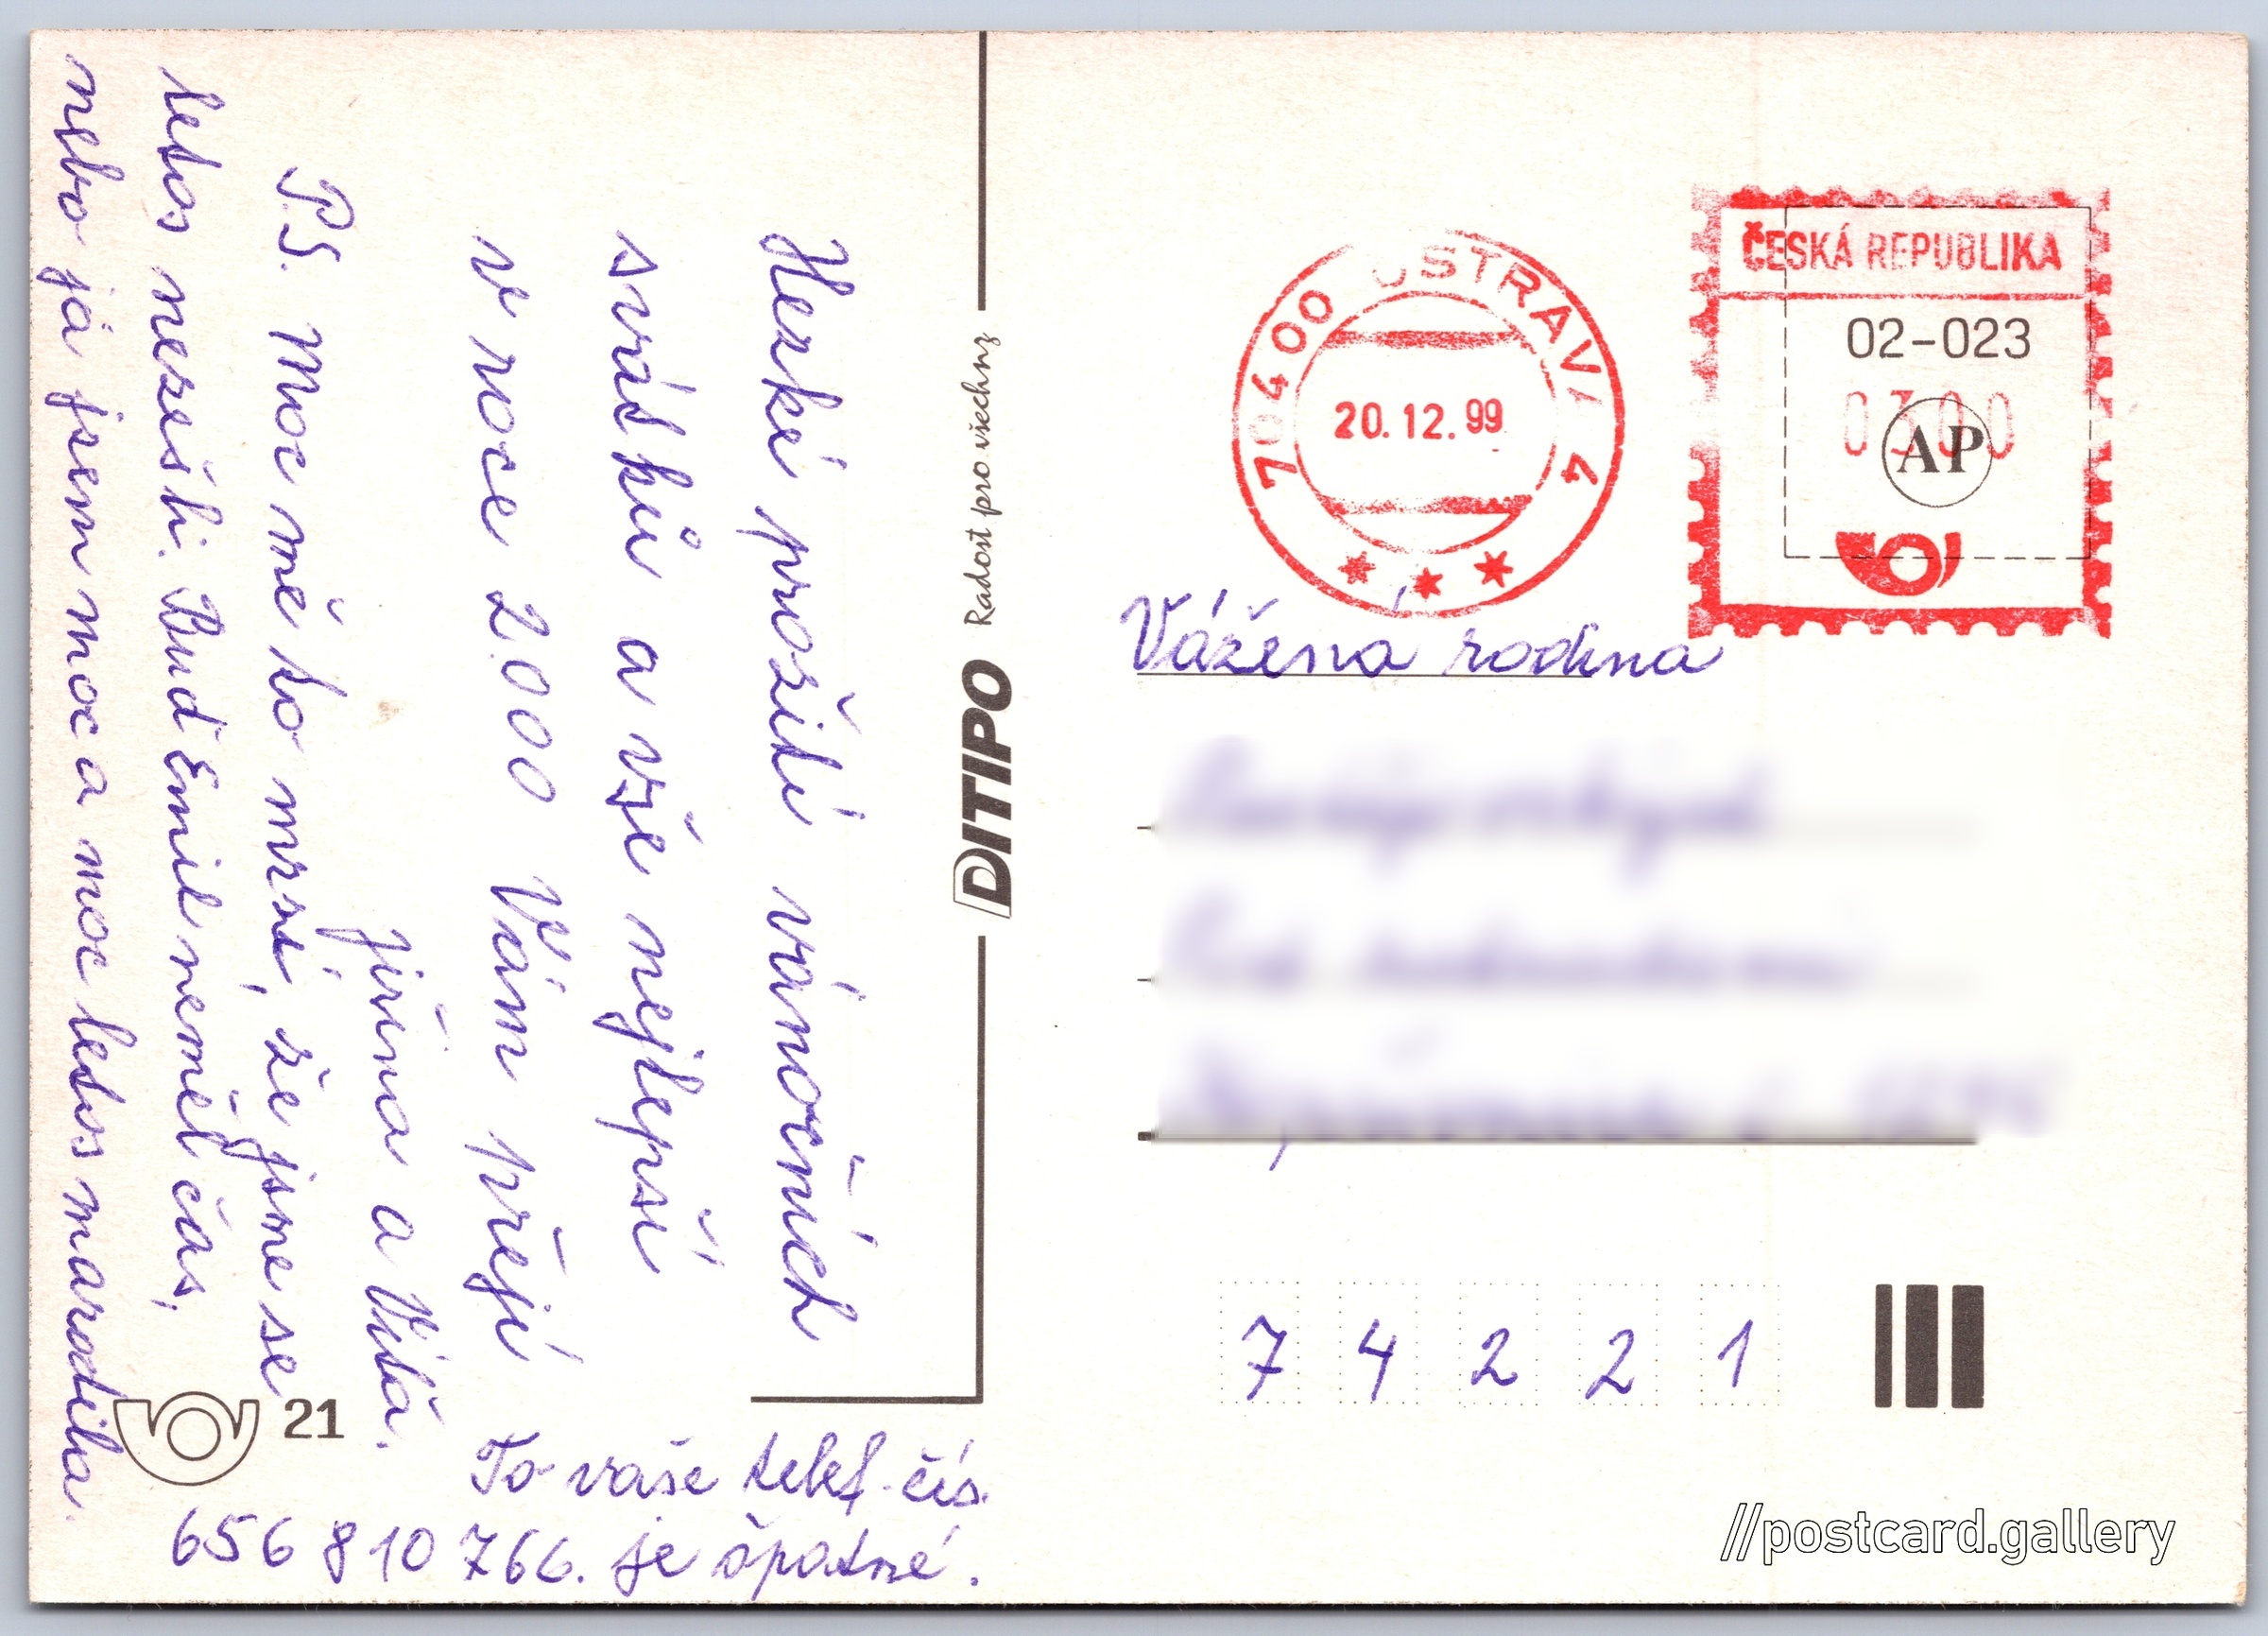 Hezké prožití vánočních
svátků a vše nejlepší
v roce 2.000 Vám přejí
Jiřina a Víťa.
P.S. Moc mě to mrzí, že jsme se
letos nezešli. Buď Emil neměl čas,
nebo já jsem moc a moc letos marodila.
To vaše telef. čís.
656 810 766. je špatné.
21
Radost pro všechny
DITIPO
70400 OSTRAVA 4
20.12.99
ČESKÁ REPUBLIKA
02-023
0300
AP
Vážená rodina
7 4 2 2 1
//postcard.gallery